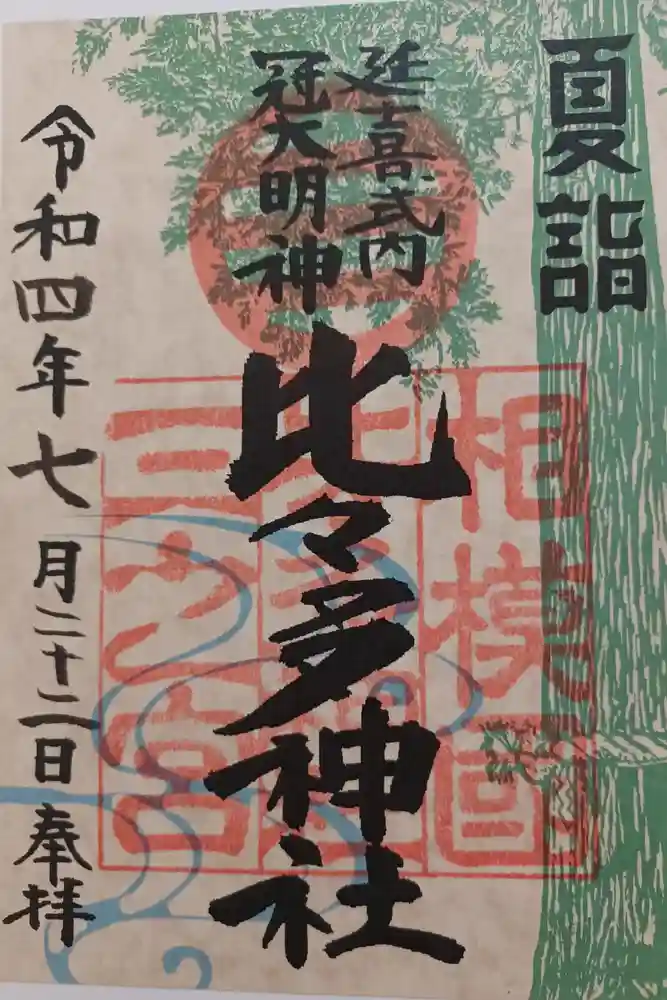 夏詣
延喜式内
冠大明神
比々多神社
令和四年七月二十二日奉拝
相模国
三之宮